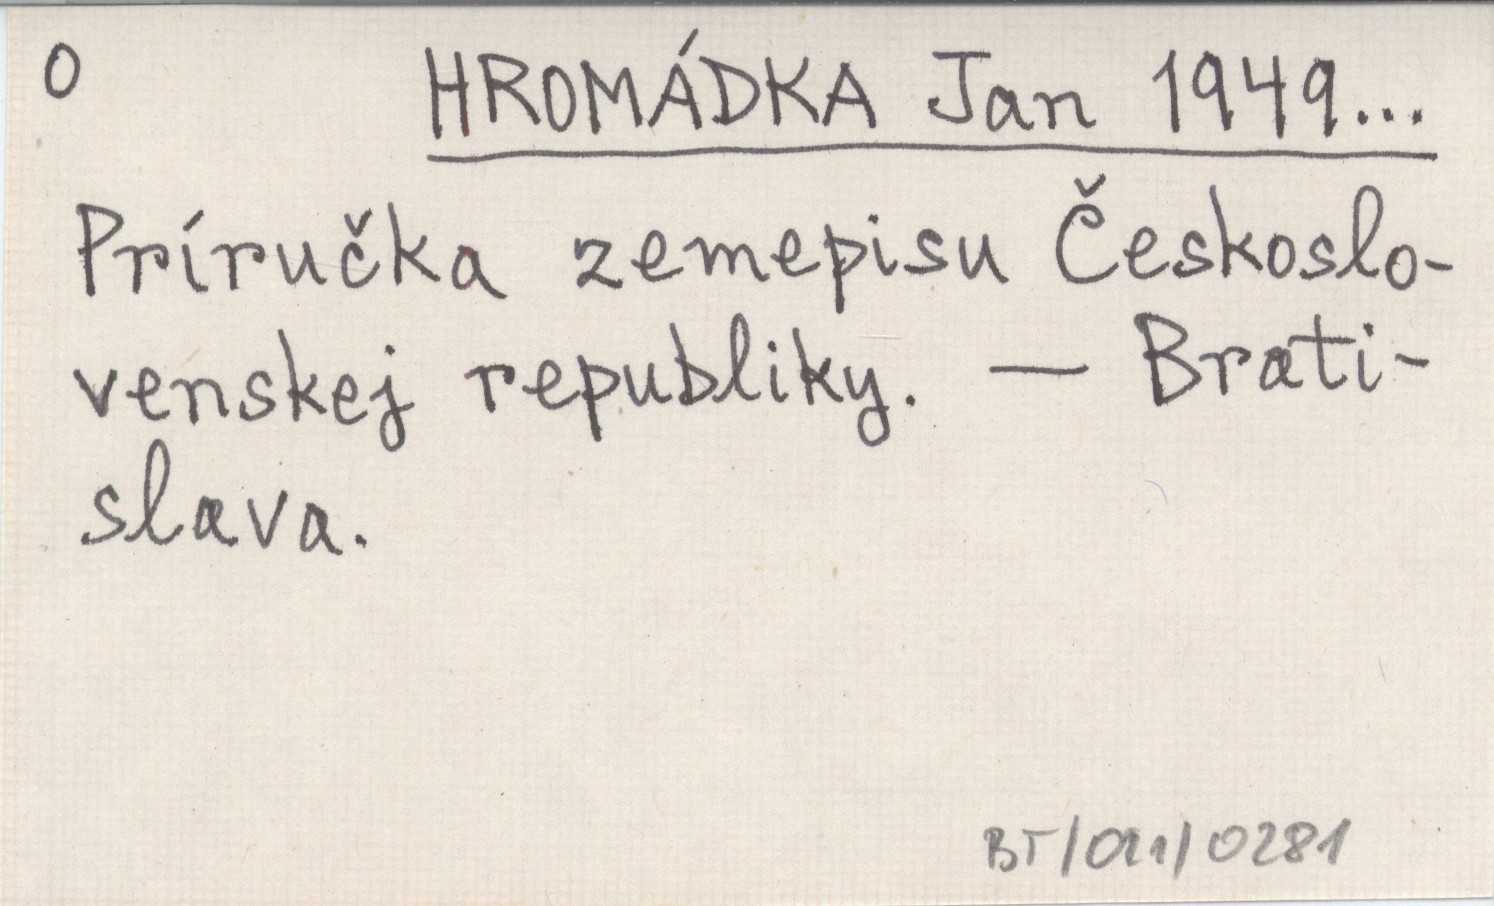 O HROMÁDKA Jan 1949...
Príručka zemepisu Českoslo-
venskej republiky. — Brati-
slava.
BT/011/0281